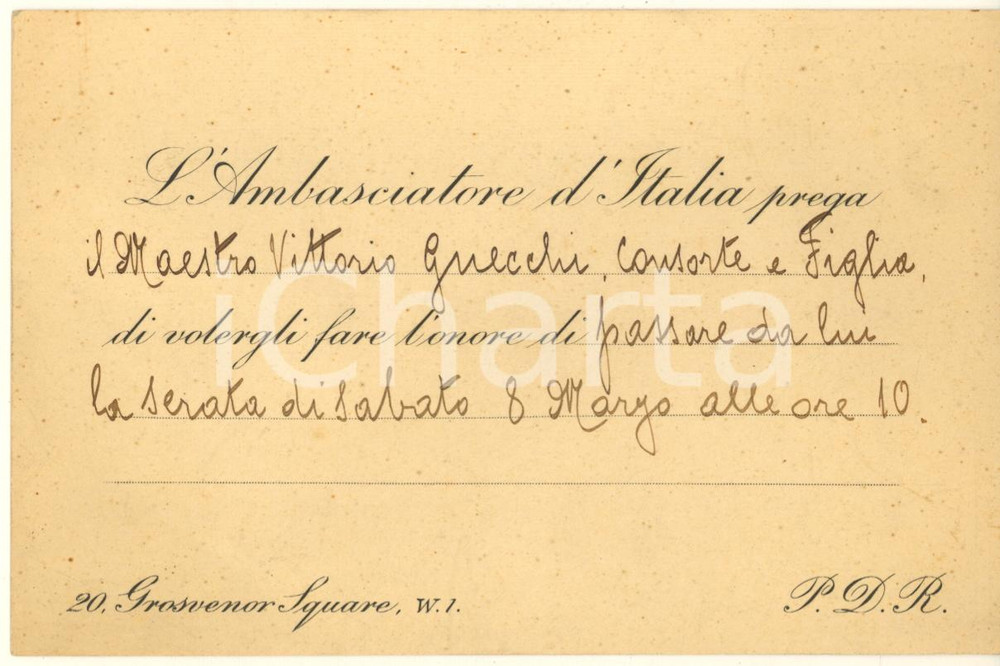 L'Ambasciatore d'Italia prega
il Maestro Vittorio Gnecchi, Consorte e Figlia,
di volergli fare l'onore di passare da lui
la serata di Sabato 8 Marzo alle ore 10.
20, Grosvenor Square, W.1.
P. D. R.
iCharta